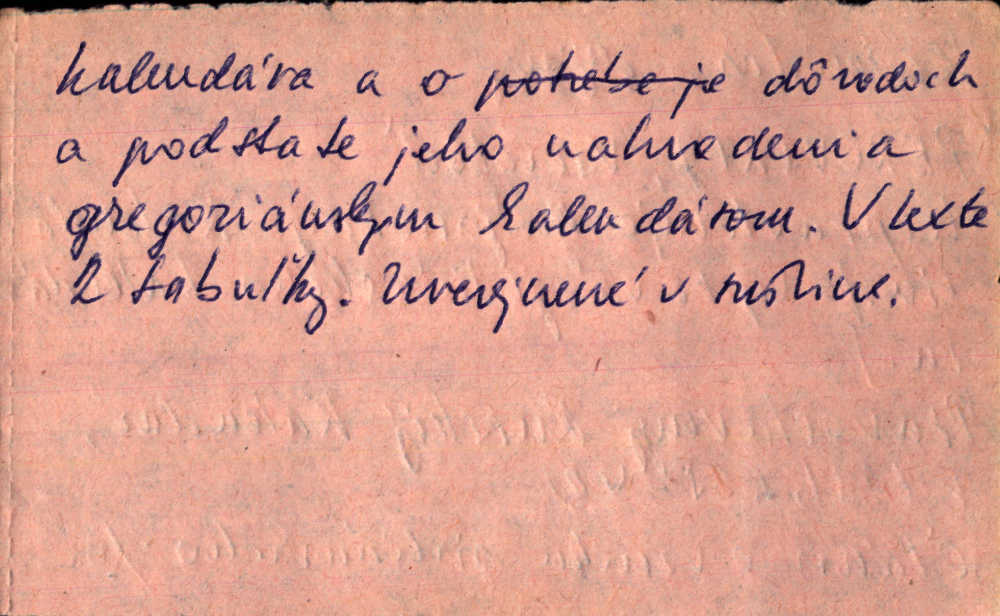 kalendára a o potrebe je dôvodoch
a podstate jeho nahradenia
gregoriánskym kalendárom. V texte
2 tabuľky. Uverejnené v rusštine.